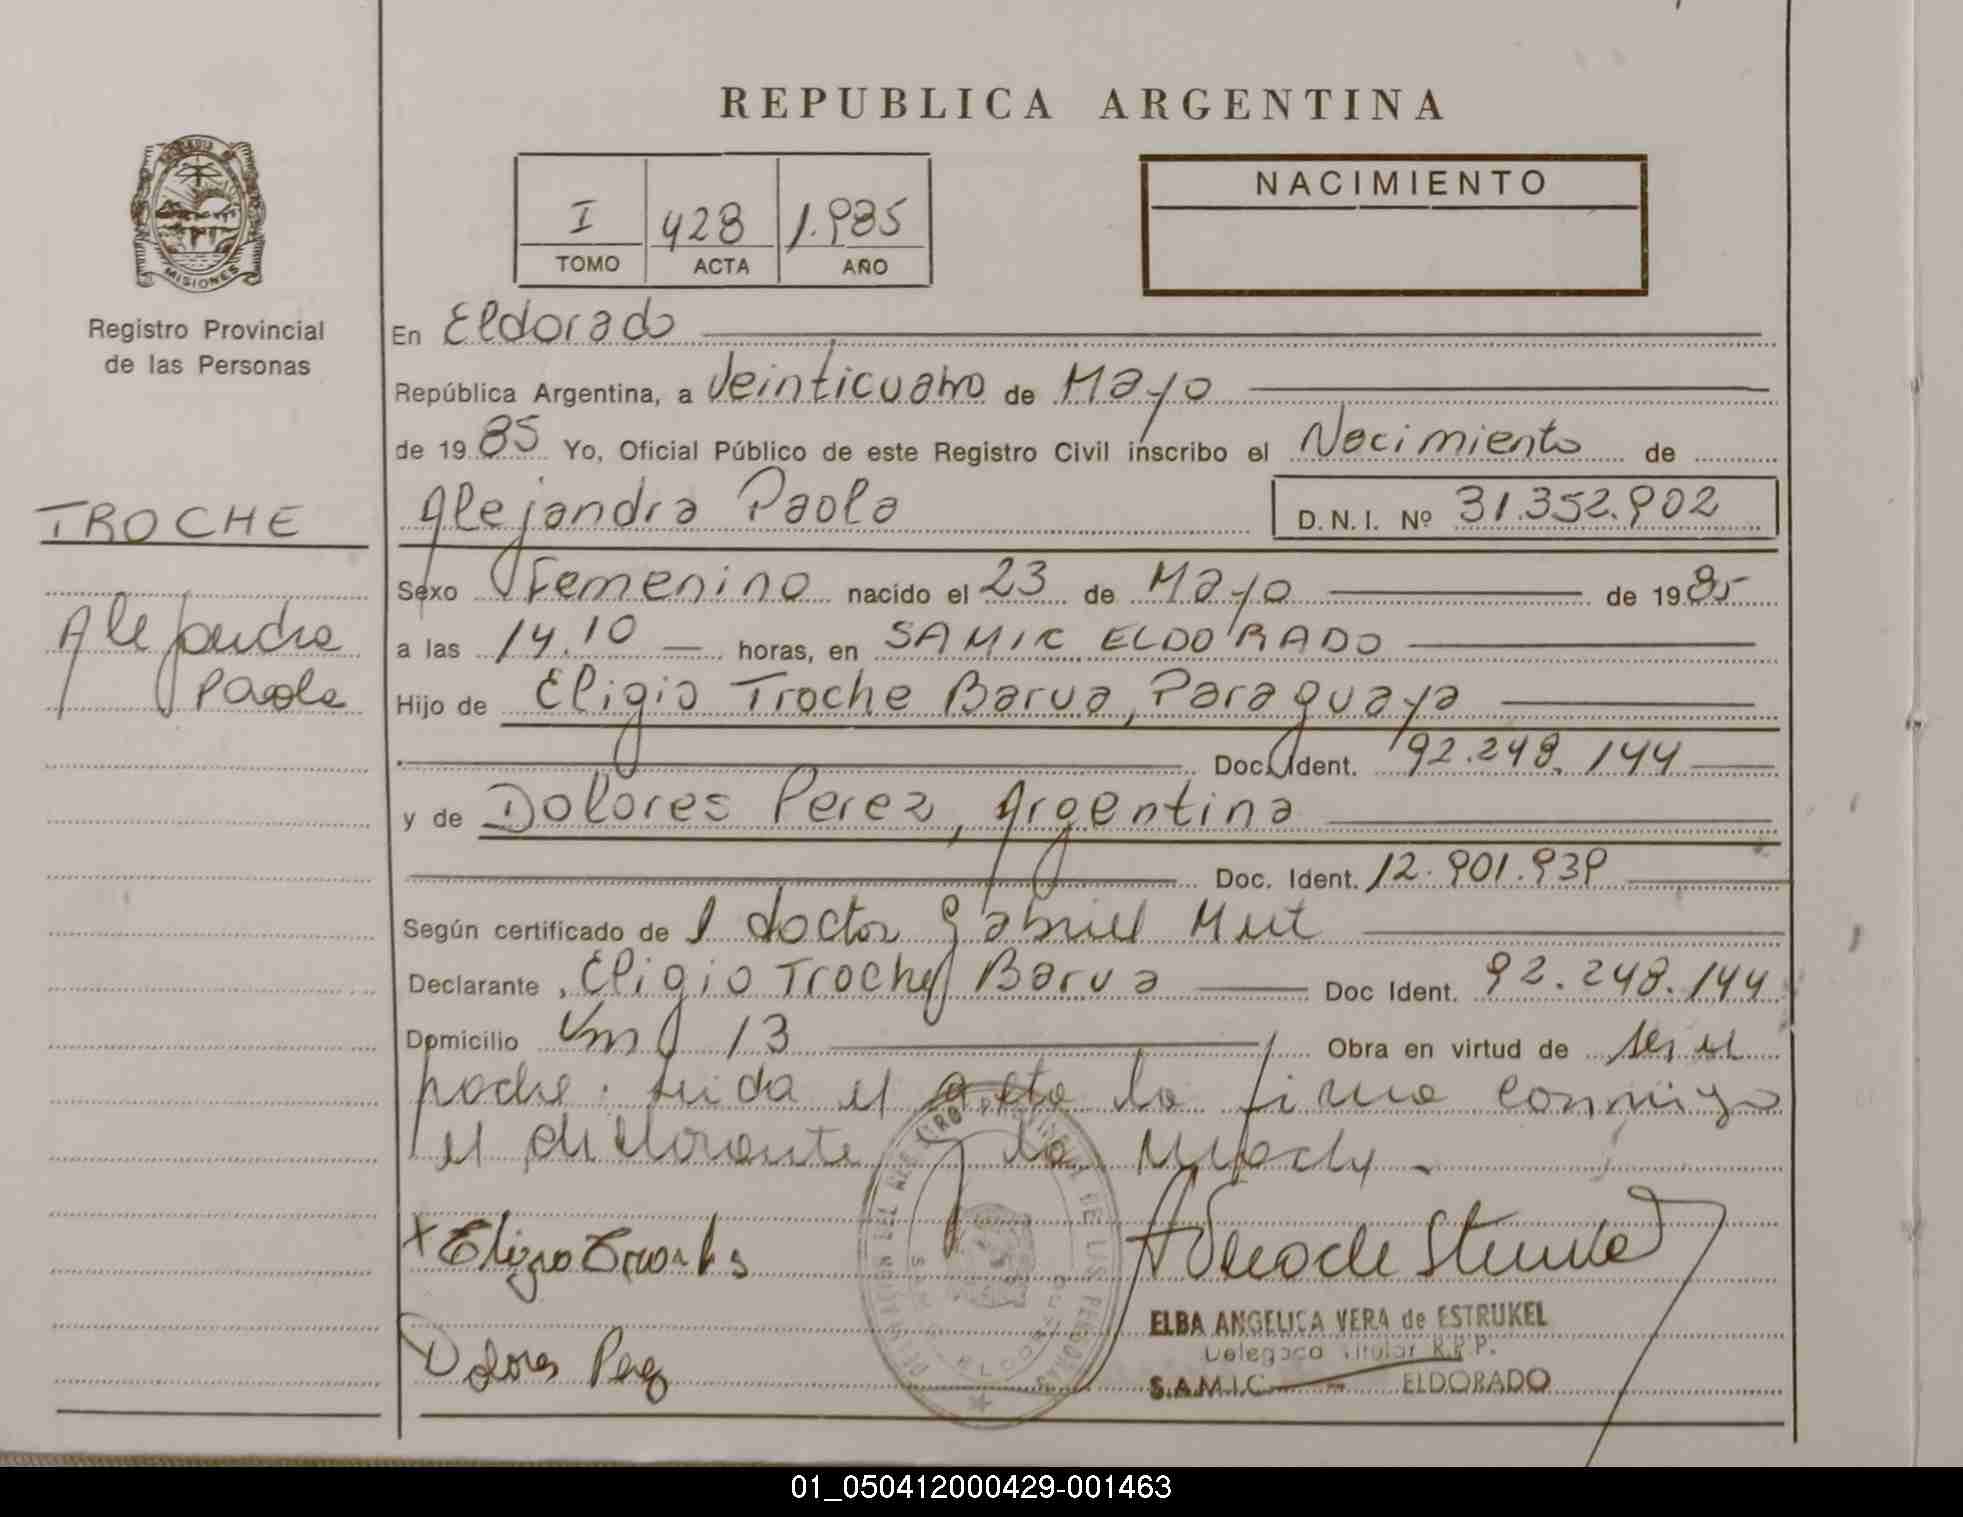 REPUBLICA ARGENTINA
I 428 1.985
TOMO ACTA AÑO
NACIMIENTO
MISIONES
Registro Provincial
de las Personas
En Eldorado
República Argentina, a Veinticuatro de Mayo
de 19 85 Yo, Oficial Público de este Registro Civil inscribo el Nacimiento de
TROCHE
Alejandra Paola D.N.I. Nº 31.352.902
Sexo Femenino nacido el 23 de Mayo de 1985
Alejandra
Paola
a las 14.10 horas, en SAMIC ELDORADO
Hijo de Eligio Troche Barua, Paraguaya
Doc. Ident. 92.248.144
y de Dolores Perez, Argentina
Doc. Ident. 12.901.939
Según certificado de l doctor Gabriel Mut
Declarante, Eligio Troche Barua Doc Ident. 92.248.144
Domicilio Km 13 Obra en virtud de ser el
padre. Leida el acta la firma conmigo
el declarante la Madre.
x Eligio Troche B
Dolores Perez
ELBA ANGELICA VERA de ESTRUKEL
Delegada Titular R.P.P.
S.A.M.I.C. ELDORADO
01_050412000429-001463